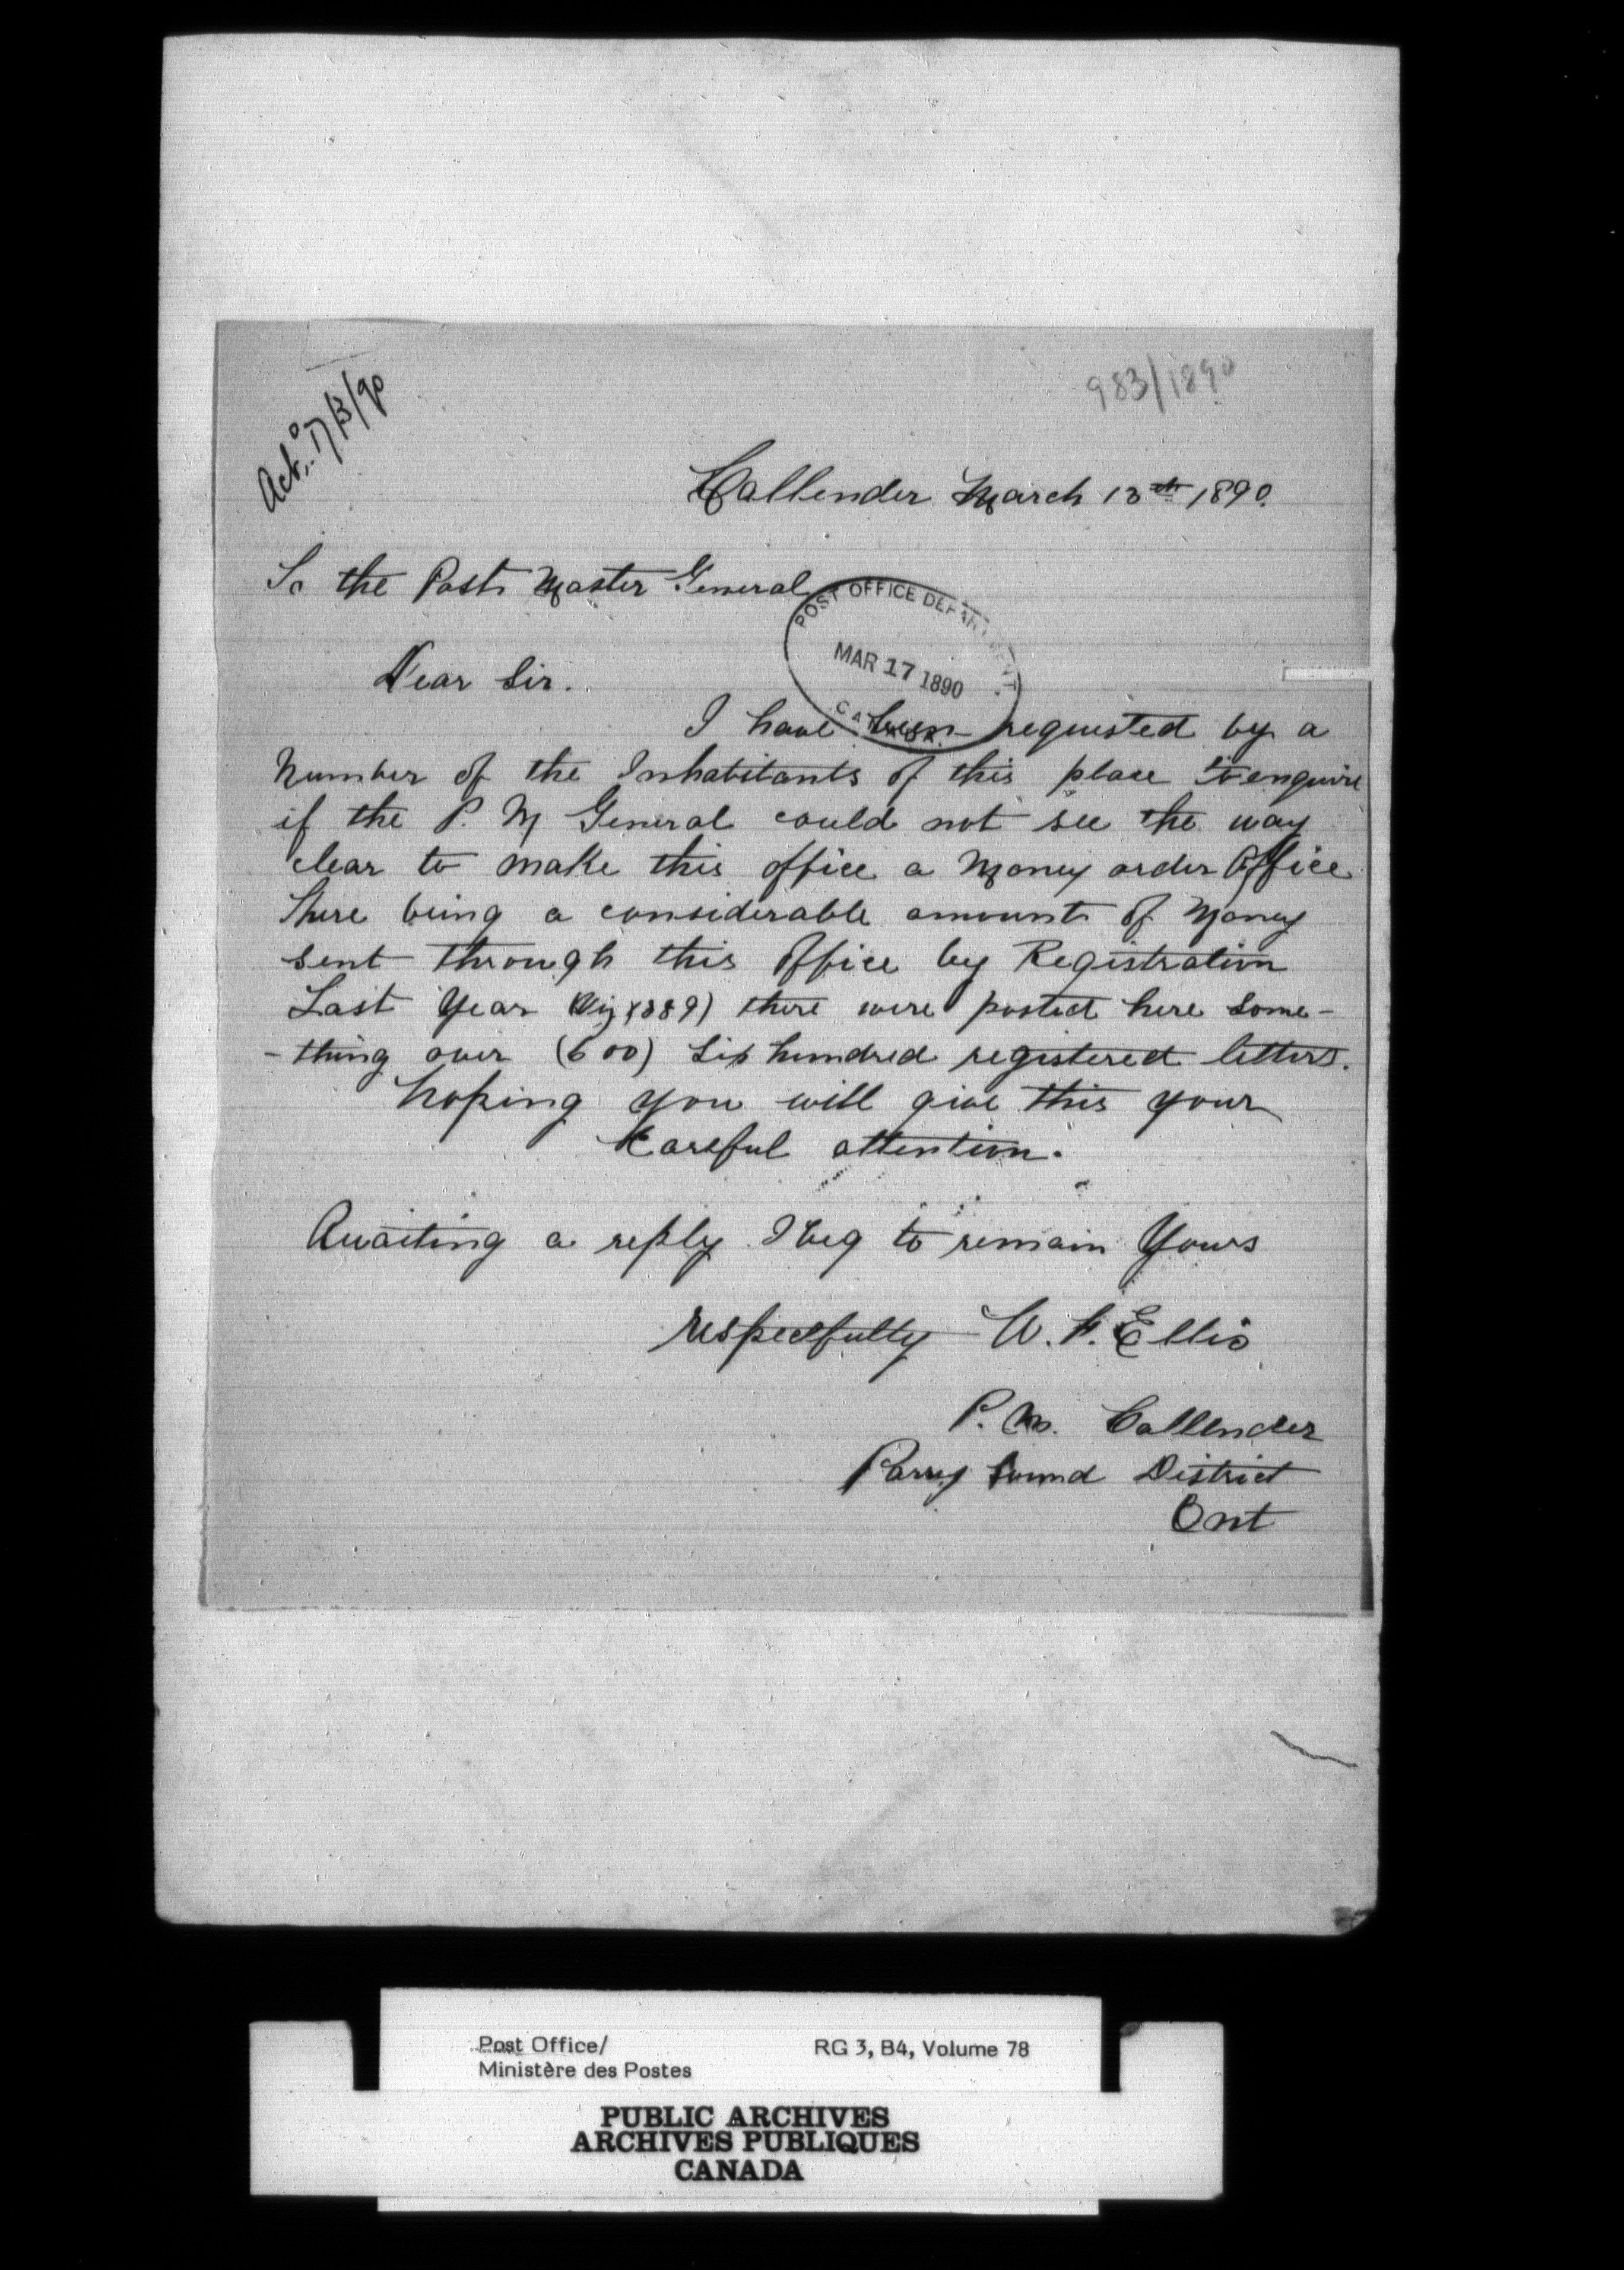 Ack.d 17/3/90
983/1890
Callender March 13th 1890.
To the Post Master General
POST OFFICE DEPARTMENT
MAR 17 1890
CANADA.
Dear Sir.
I have been requested by a
Number of the Inhabitants of this place to enquire
if the P. M General could not see the way
clear to make this office a Money order Office
There being a considerable amount of Money
sent through this Office by Registration
Last Year (Viz 1889) there were posted here some-
-thing over (600) Six hundred registered letters.
hoping you will give this your
Careful attention.
Awaiting a reply I beg to remain Yours
respectfully W. F. Ellis
P. M. Callender
Parry Sound District
Ont
Post Office/
Ministère des Postes
RG 3, B4, Volume 78
PUBLIC ARCHIVES
ARCHIVES PUBLIQUES
CANADA